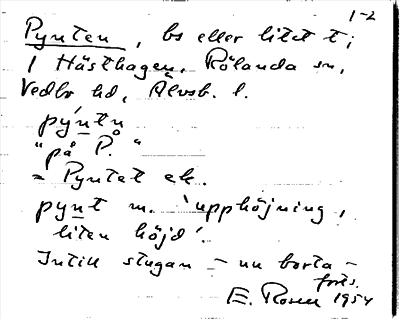 1-2
Pynten, bs eller litet t;
1 Hästhagen, Rölanda sn,
Vedbo hd, Älvsb. l.
pýntn
"på P."
= Pyntet ek.
pynt m. 'upphöjning,
liten höjd'.
Intill stugan – nu borta –
forts.
E. Rosen 1954